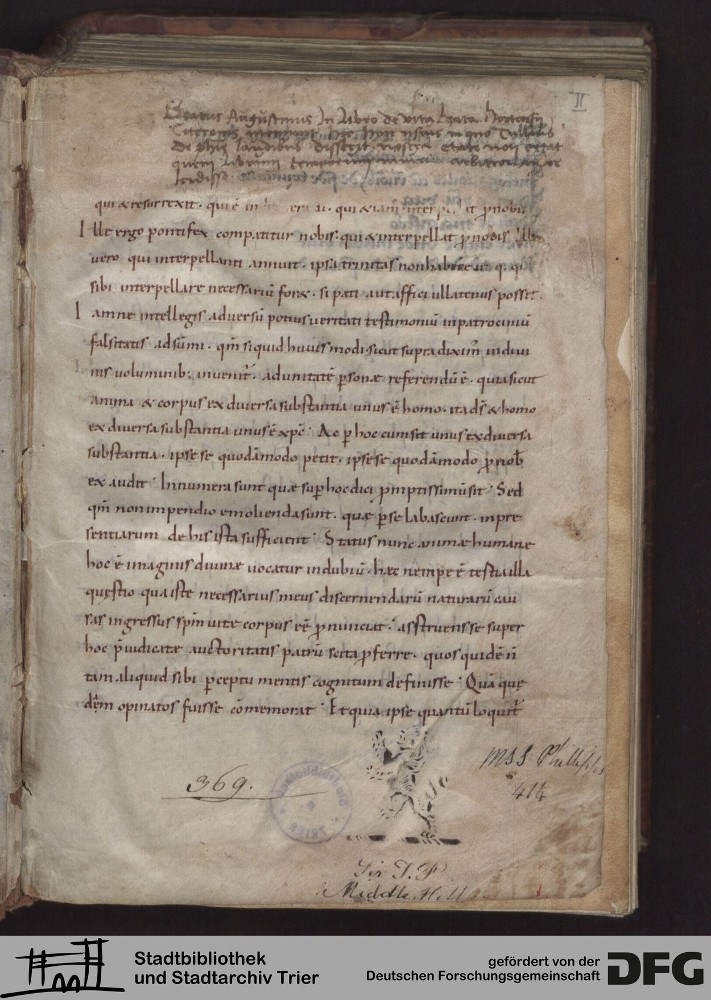 II
Beatus Augustinus In Libro de vita beata Hortensij
Ciceronis meminit. hic
De phie laudibus disserit. nostra etate non extat
quem librum arbitror
qui & resurrexit · qui ē qui &iam interpellat ꝓ nobis
Ille ergo pontifex compatitur nobis · qui & interpellat ꝓ nobis · Ille
vero qui interpellanti annuit · ipsa trinitas non haberet
sibi interpellare necessariū for& · si pati aut affici ullatenus posset ·
Iamne intellegis adversū potius veritati testimoniū in patrociniū
falsitatis adsūmi · qm̄ siquid huius modi sicut supra diximꝰ in divi
nis voluminib; inuenit̄ · ad unitatē ꝑsonæ referendū ē · quia sicut
anima & corpus ex diuersa substantia unus ē homo · ita dſ̄ & homo
ex diversa substantia unus ē xp̄c · Ac ꝑ hoc cum sit unus ex diversa
substantia · ipse se quodāmodo petit · ipse se quodāmodo ꝓ nob̄
exaudit · Innumera sunt quæ suꝑ hoc dici ꝓmptissimū sit · Sed
qm̄ non impendio emolienda sunt · quæ ꝑ se labascunt · in præ
sentiarum de his ista sufficient · Status nunc animæ humanæ
hoc ē imaginis divinæ vocatur in dubiū · hæc nempe ē tertia illa
quęstio qua iste necessarius meus discernendarū naturarū cau
sas ingressus spm̄ vitę corpus eē ꝓnunciat · asstruens se super
hoc p̄iudicatæ auctoritatis patrū scita ꝓferre · quos quidē n̄
tam aliquid sibi ꝑceptu mentis cognitum definisse · Quā que
dēm opinatos fuisse cōmemorat · Et quia ipse quantū loquit̄
369.
MSS Phillipps
414
Sir T. P
Middle Hill
Stadtbibliothek
und Stadtarchiv Trier
gefördert von der
Deutschen Forschungsgemeinschaft
DFG